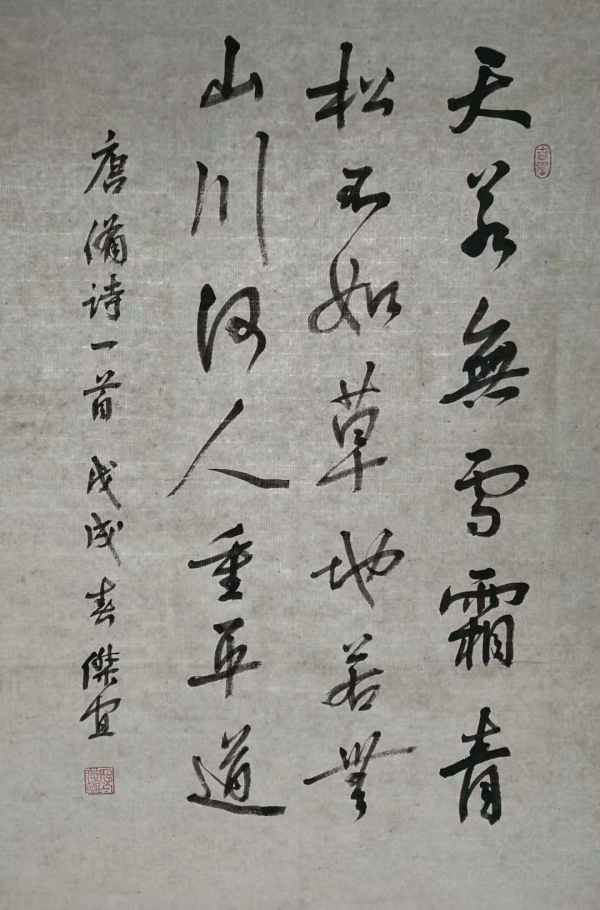 天若無雪霜青
松不如草地若無
山川何人重平道
唐備诗一首 戊戌春傑宜